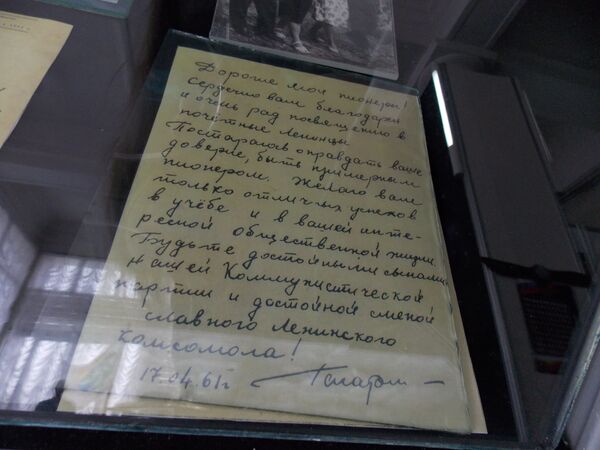 Дорогие мои пионеры!
Сердечно вам благодарен
и очень рад посвящению в
почётные Ленинцы
Постараюсь оправдать ваше
доверие, быть примерным
пионером. Желаю вам
только отличных успехов
в учёбе и в вашей инте-
ресной общественной жизни
Будьте достойными сынами
нашей Коммунистической
партии и достойной сменой
славного Ленинского
комсомола!
17.04.61г